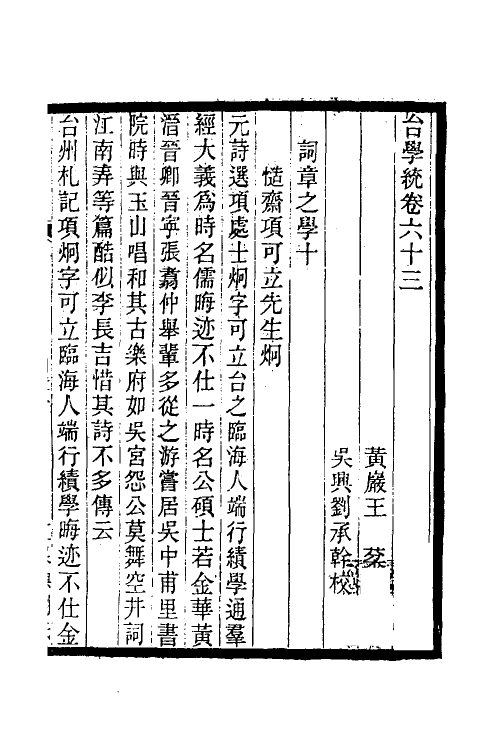 台學統卷六十三
黃巖王棻
吳興劉承幹校
詞章之學十
慥齋項可立先生炯
元詩選項處士炯字可立台之臨海人端行績學通羣
經大義爲時名儒晦迹不仕一時名公碩士若金華黃
溍晉卿晉寧張翥仲舉輩多從之游嘗居吳中甫里書
院時與玉山唱和其古樂府如吳宮怨公莫舞空井詞
江南弄等篇酷似李長吉惜其詩不多傳云
台州札記項炯字可立臨海人端行績學晦迹不仕金